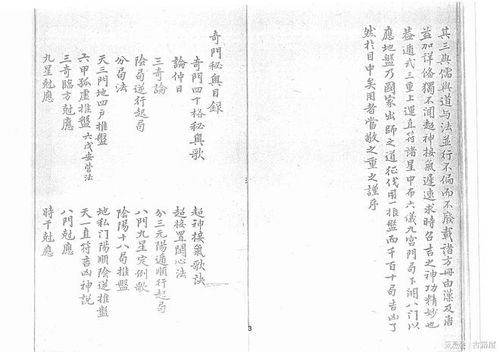 其三與儒與道与法並行不偏而不廢載諸方冊由漢及唐
益加詳俻獨不聞起神接氣遲速求時召吉之神功精妙也
葢通式三重上運直符諸星中布六儀九宮門局下開八門以
應地盤乃國家出師之道征伐用一推盤而千百十局吉凶了
然於目中矣用者當敬之重之謹序
奇門秘奧目錄
奇門四十格秘奧歌
論仲日
起神接氣歌訣
三奇論
超接置閏心法
陰局逆行起局
分三元陽遁順行起局
分局法
八門九星定例歌
天三門地四户推盤
陰陽十八局推盤
六甲孤虛推盤 六戊安營法
地私門陽順陰逆推盤
三奇臨方尅應
天一直符吉凶神說
九星尅應
八門尅應
時干尅應
3